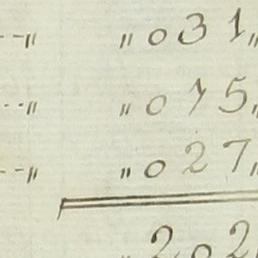 --〃 〃 0 3 1 〃
--〃 〃 0 7 5 〃
--〃 〃 0 2 7 〃
〃 2 0 2